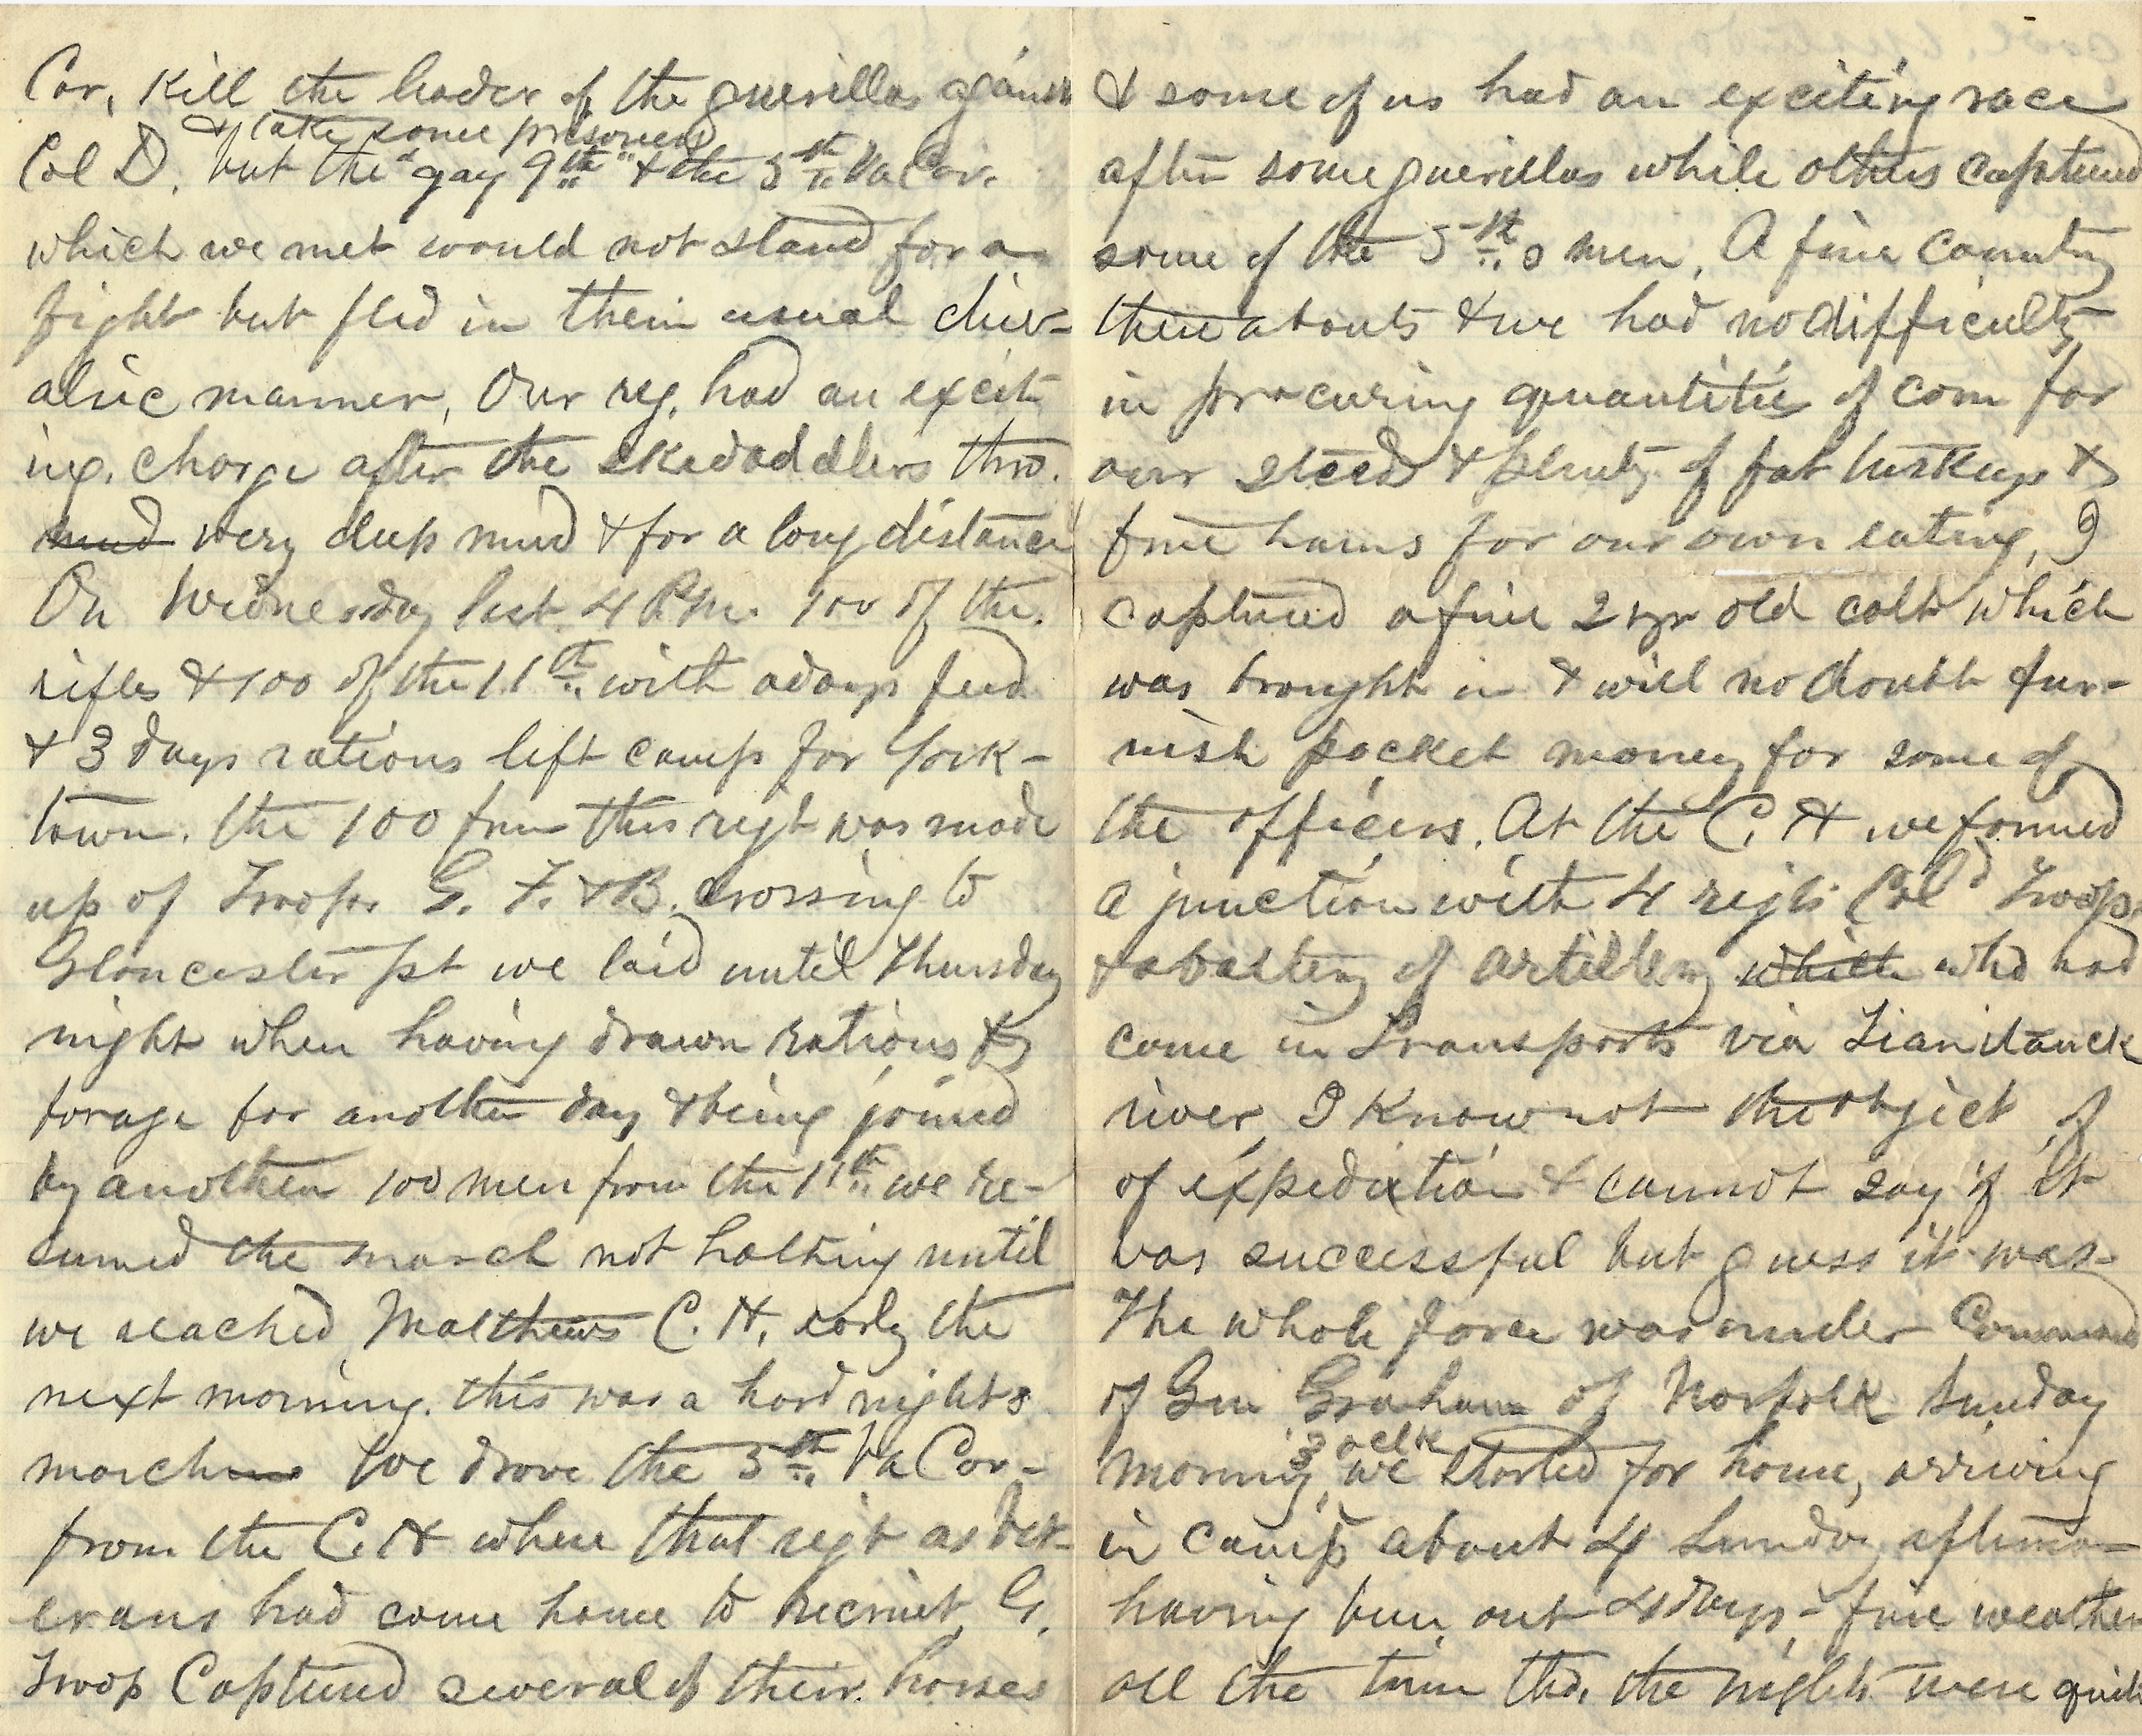 Cav. Kill the leader of the guerillas against
& take some prisoners
Col D. but the "gay 9th" & the 5th Va Cav.
which we met would not stand for a
fight but fled in their usual chiv-
alric manner, Our reg. had an excit
ing. charge after the skedaddlers thro.
mud very deep mud & for a long distance
On Wednesday last 4 P.M. 100 of the
rifles & 100 of the 11th with a days feed
& 3 days rations left camp for York-
town. the 100 from this regt was made
up of Troops G. F. & B. crossing to
Gloucester pt we laid until Thursday
night when having drawn rations &
forage for another day & being joined
by another 100 men from the 11th we re-
sumed the march not halting until
we reached Matthews C. H. early the
next morning. this was a hard nights
march We drove the 5th Va Cav-
from the C. H where that regt as vet-
erans had come home to recruit, G.
Troop Captured several of their horses
& some of us had an exciting race
after some guerillas while others captured
some of the 5th s men. A fine country
there abouts & we had no difficulty
in procuring quantities of corn for
our steeds & plenty of fat turkeys &
fine hams for our own eating, I
captured a fine 2 yr old colt which
was brought in & will no doubt fur-
nish pocket money for some of
the officers. At the C. H we formed
a junction with 4 regts Col'd Troops
& a battery of artillery which who had
come in Transports via Piankitanck
river, I know not the object of
of expedixtion & cannot say if it
was successful but guess it was-
The whole force was under Command
of Gen Graham of Norfolk Sunday
3 oclk
morning, we started for home, arriving
in camp about 4 Sunday afternoon
having been out 4 days,- fine weather
all the time tho. the nights were quite